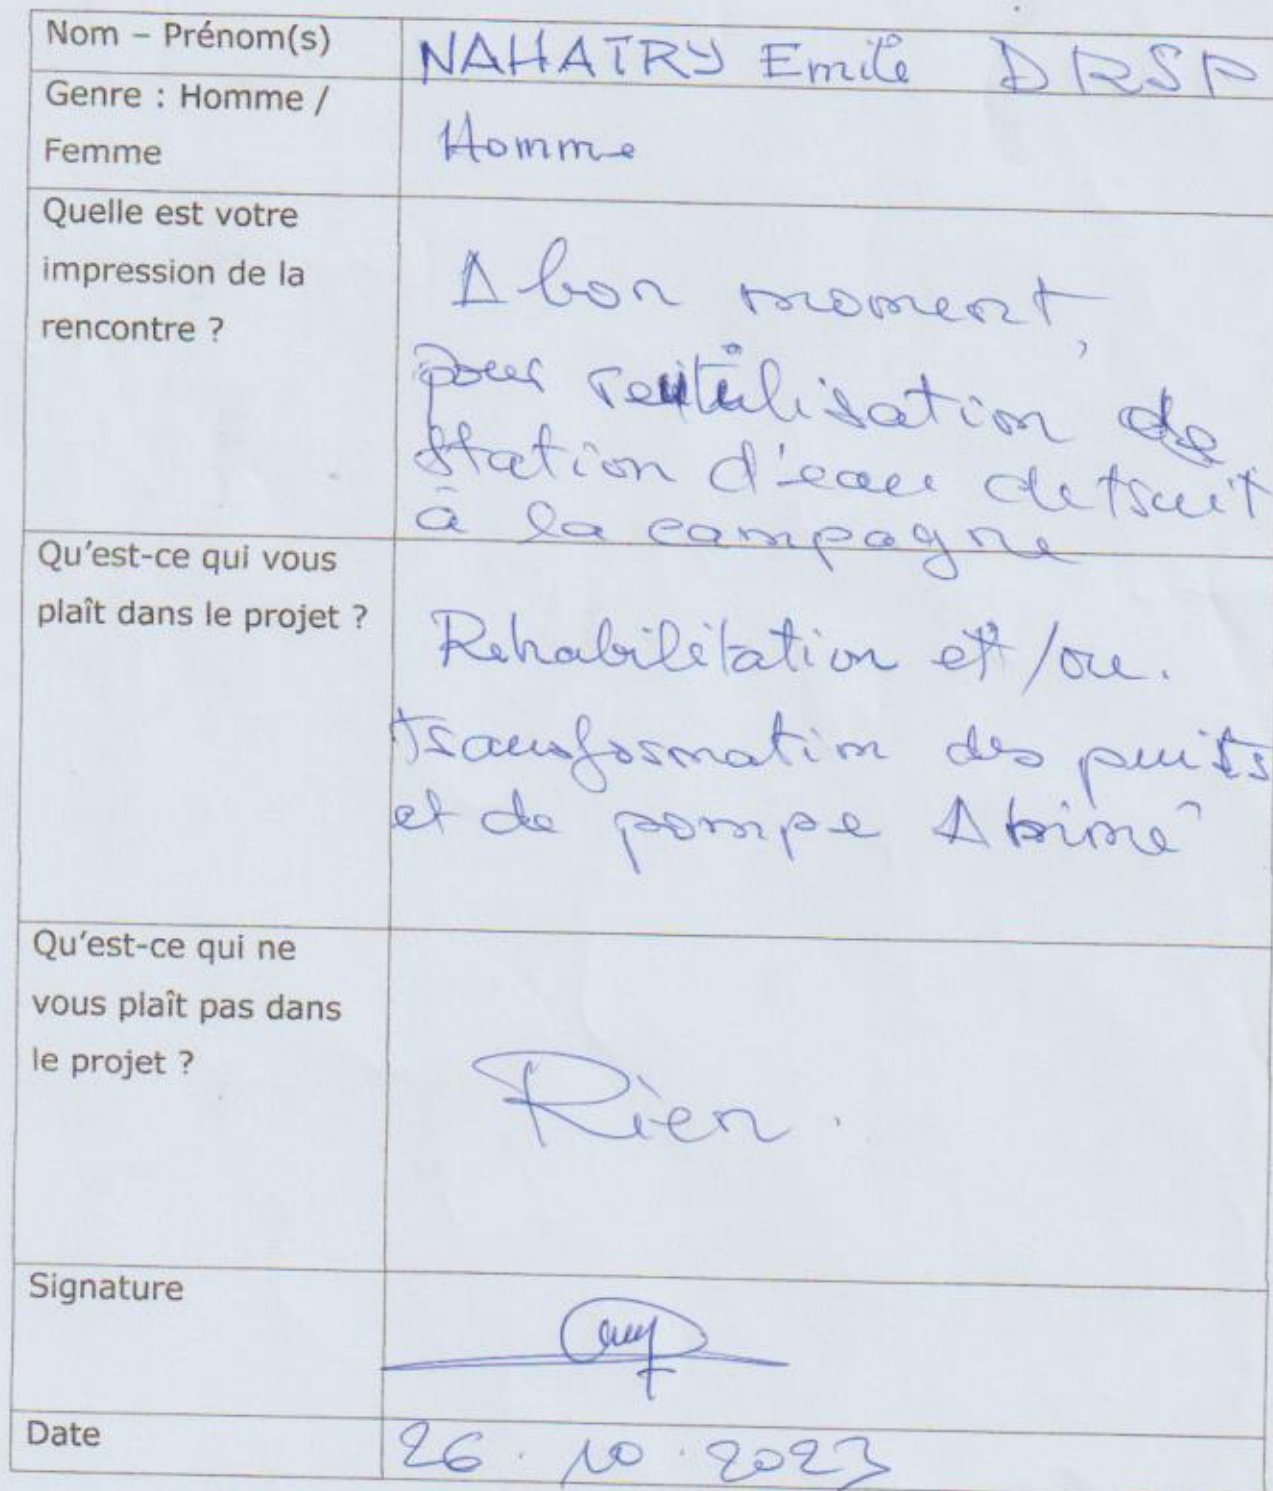 Nom – Prénom(s)
NAHATRY Emile DRSP
Genre : Homme /
Femme
Homme
Quelle est votre
impression de la
rencontre ?
A bon moment,
pour reutilisation de
station d'eau detruit
à la campagne
Qu'est-ce qui vous
plaît dans le projet ?
Rehabilitation et/ou.
transformation des puits
et de pompe Abimé
Qu'est-ce qui ne
vous plaît pas dans
le projet ?
Rien.
Signature
Date
26.10.2023